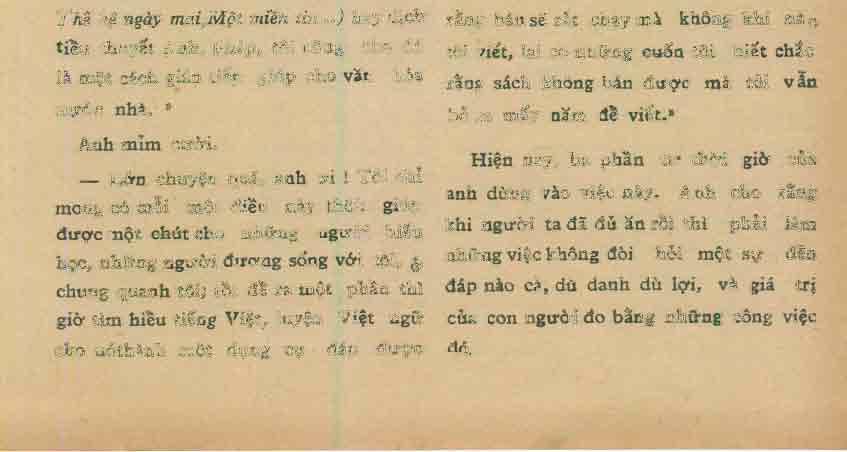 Thế hệ ngày mai, Một niềm tin...) hay dịch
tiểu thuyết Anh, Pháp, tôi cũng cho đó
là một cách gián tiếp giúp cho văn hóa
nước nhà.
Anh mỉm cười.
— chuyện quá, anh ơi ! Tôi chỉ
mong có mỗi một điều này thôi: giúp
được một chút cho những người hiếu
học, những người đương sống với tôi, ở
chung quanh tôi; tôi để ra một phần thì
giờ tìm hiểu tiếng Việt, luyện Việt ngữ
cho nó thành một dụng cụ đắc được
rằng bán sẽ rất chạy mà không khi nào
tôi viết, lại có những cuốn tôi biết chắc
rằng sách không bán được mà tôi vẫn
bỏ ra mấy năm để viết.»
Hiện nay, ba phần tư thời giờ của
anh dùng vào việc này. Anh cho rằng
khi người ta đã đủ ăn rồi thì phải làm
những việc không đòi hỏi một sự đền
đáp nào cả, dù danh dù lợi, và giá trị
của con người đo bằng những công việc
đó.